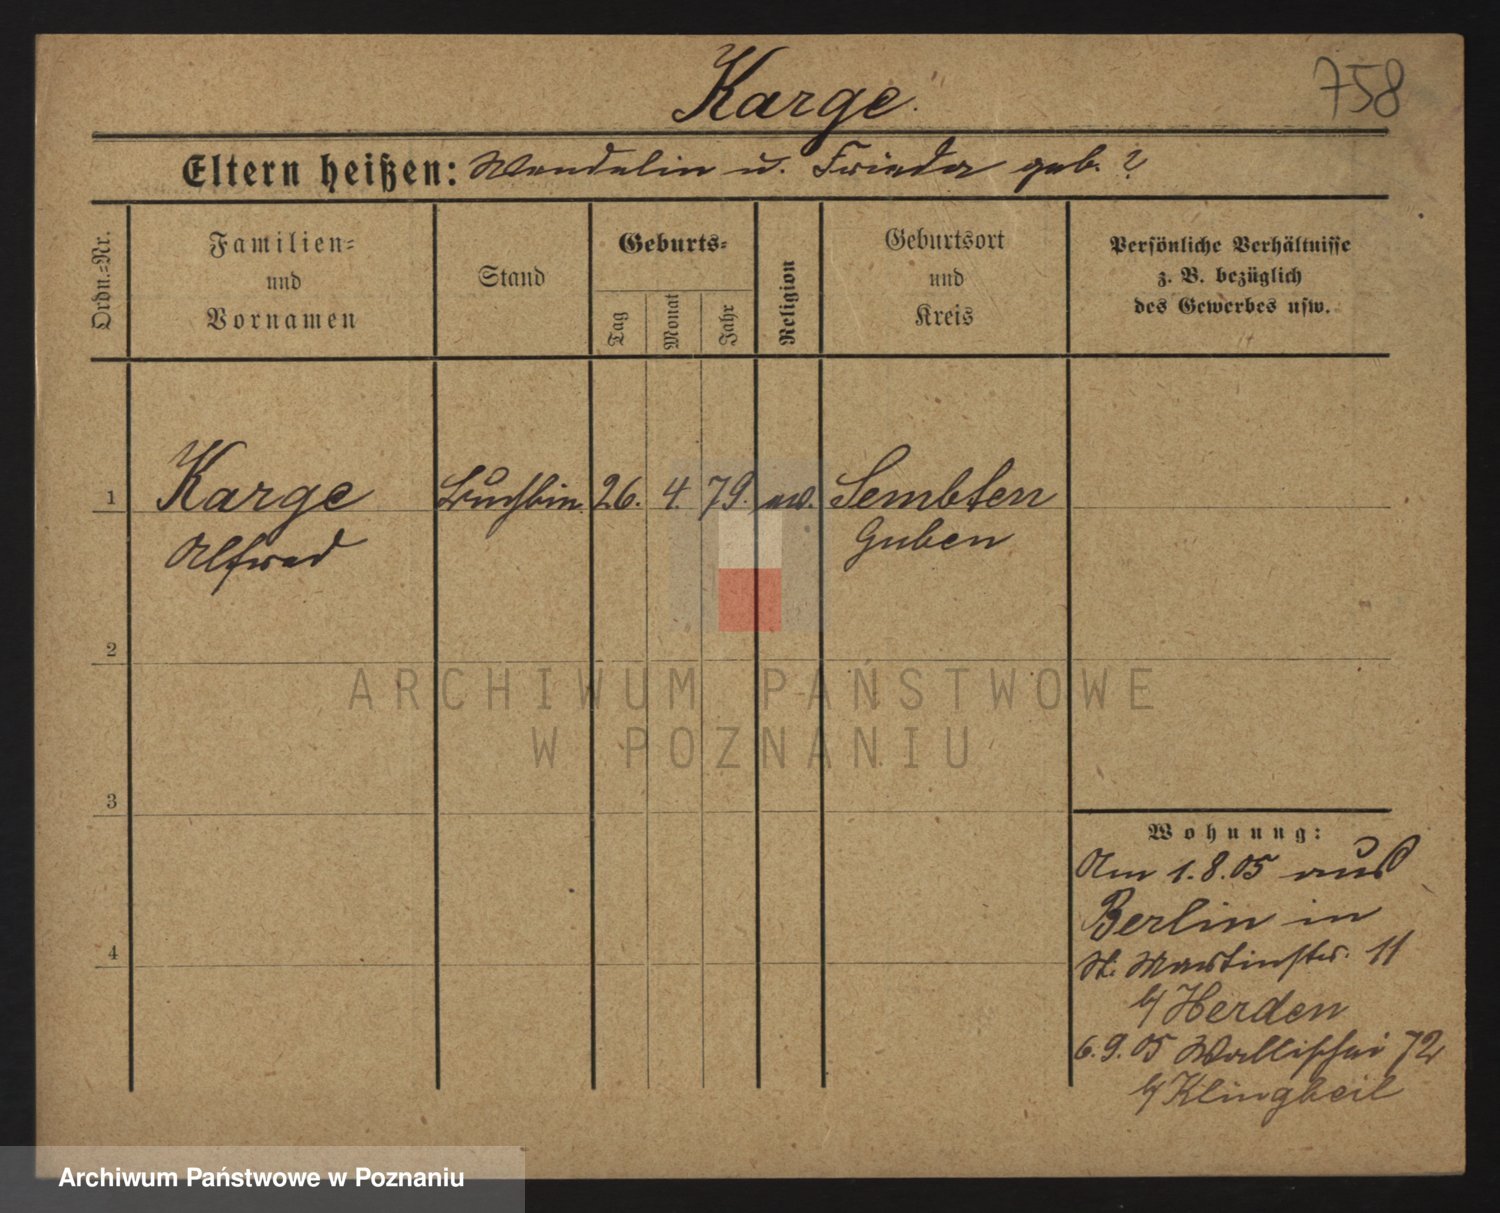 Karge.
758
Eltern heißen: Wendelin u. Frieda geb. ?
Ordn.-Nr.
Familien-
und
Vornamen
Stand
Geburts-
Tag
Monat
Jahr
Religion
Geburtsort
und
Kreis
Persönliche Verhältnisse
z. B. bezüglich
des Gewerbes usw.
1
Karge
Alfred
Buchbin.
26.
4.
79.
ev.
Sembten
Guben
2
3
4
Wohnung:
Am 1.8.05 aus
Berlin in
St. Martinstr. 11
b/ Herden
6.9.05 Wallischei 72
b/ Klingbeil
ARCHIWUM PAŃSTWOWE
W POZNANIU
Archiwum Państwowe w Poznaniu